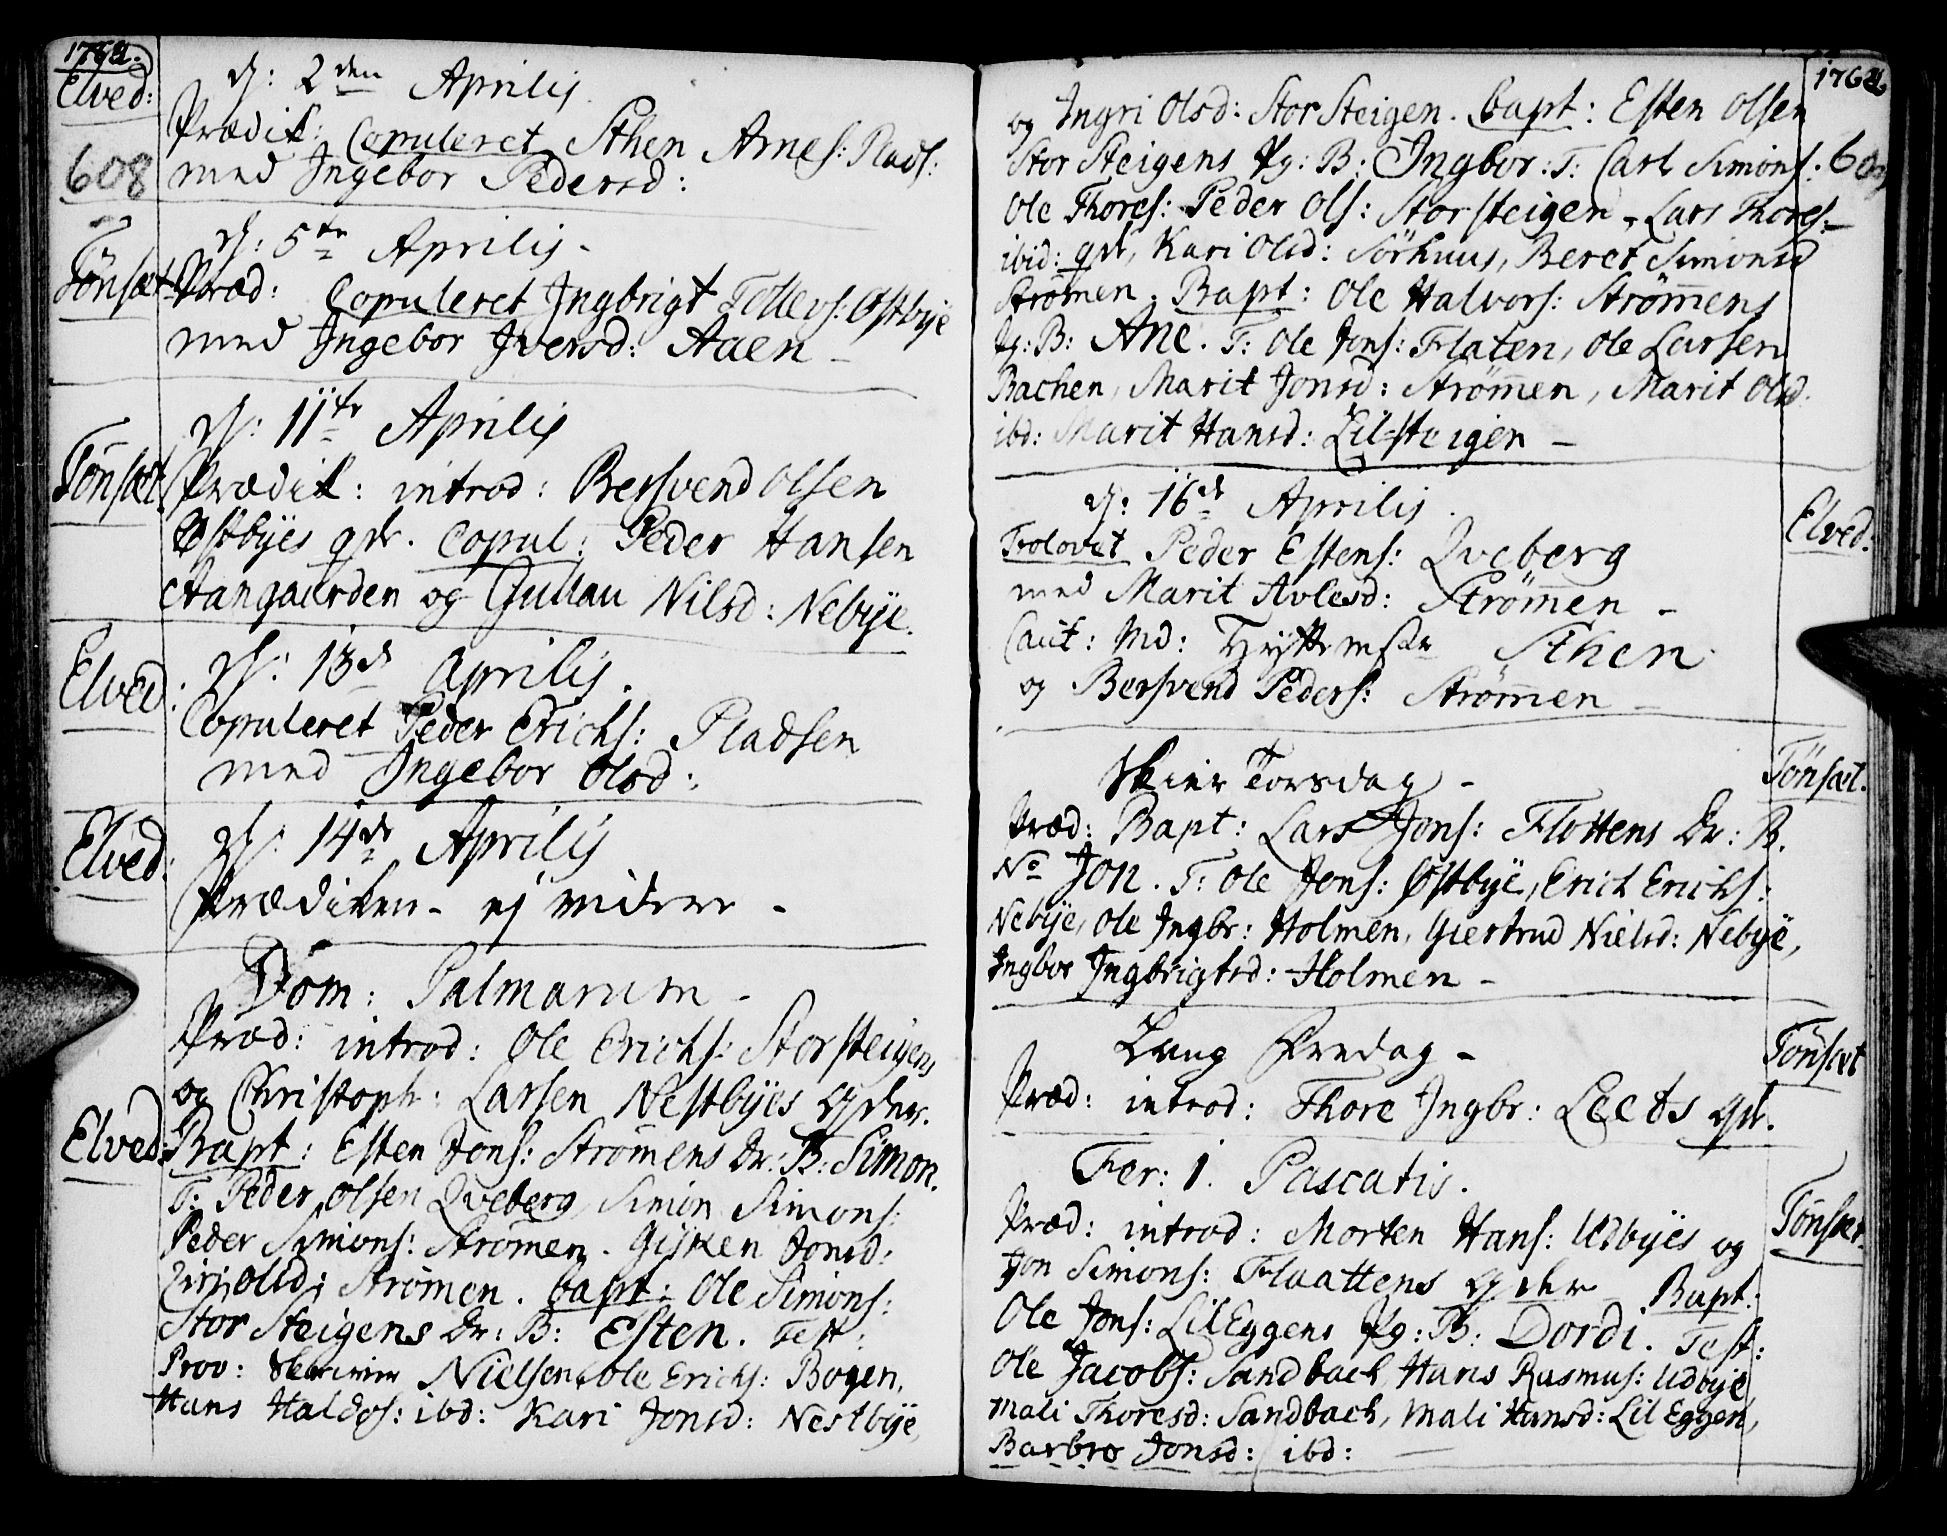 Elved:
d: 2den Aprilis
Prædik: Copuleret Sthen Arnes: Plads:
608
med Ingebor Pedersd:
d: 5te Aprilis -
Tönsæt
Præd: Copuleret Ingbrigt Tollevs: Østbÿe
med Ingebor Iversd: Aaen -
d: 11te Aprilis
Tönsæt
Prædik: introd: Bersvend Olsen
Østbÿes qde. Copul: Peder Hansen
Aangaarden og Gullau Nilsd: Nebÿe.
Elved:
d: 13de Aprilis.
Copuleret Peder Erichs: Pladsen
med Ingebor Olsd:
Elved:
d: 14de Aprilis
Prædiken - ej videre -
Dom: Palmarum -
Præd: introd: Ole Erichs: Storsteigens
og Christoph: Larsen Nestbÿes qder.
Elved:
Bapt: Esten Jons: Strömens Dr: B: Simon.
T: Peder Olsen Qveberg, Simon Simons:
Peder Simons: Strömen. Gjken Jonsd:
Siri Olsd: Strömen. bapt: Ole Simons:
Stor Steigens Dr: B: Esten. Test:
Prov: Nielsen, Ole Erichs: Bogen,
Hans Haldos: ibd: Kari Jonsd: Nestbÿe,
og Ingri Olsd: Stor Steigen. Bapt: Esten Olsen
Stor Steigens Pg: B: Ingbor. T: Carl Simons:
Ole Thores: Peder Ols: Storsteigen, Lars Thores:
ibid: qde, Kari Olsd: Sörhuus, Beret Simonsd
Strömen. Bapt: Ole Halvors: Strömens
Pg: B: Ane. T: Ole Jons: Flaten, Ole Larsen
Bachen, Marit Jonsd: Strömen, Marit Olsd.
ibd: Marit Hansd: Lil-steigen -
d: 16de Aprilis.
Elved:
Trolovet Peder Estens: Qveberg
med Marit Avlesd: Strömen -
Caut: Md: Hÿttemstr Sthen
og Bersvend Peders: Strömen -
Skier Torsdag -
Tönsæt.
Præd: Bapt: Lars Jons: Flottens Dr: B.
No Jon. T: Ole Jons: Østbÿe, Erich Erichs:
Nebÿe, Ole Ingbr: Holmen, Giertrud Nielsd: Nebÿe,
Ingbor Ingbrigtsd: Holmen -
Lang Fredag -
Tönsæt
Præd: introd: Thore Ingbr: Leets qde.
Fer: 1. Pascatis.
Tönsæt.
Præd: introd: Morten Hans: Udbÿes og
Jon Simons: Flaattens qder Bapt:
Ole Jons: Lil Eggens Pg: B: Dordi. Test:
Ole Jacobs: Sandbach, Hans Rasmus: Udbÿe
Mali Thoresd: Sandbach, Mali Hansd: Lil Eggen,
Barbro Jonsd: ibd: